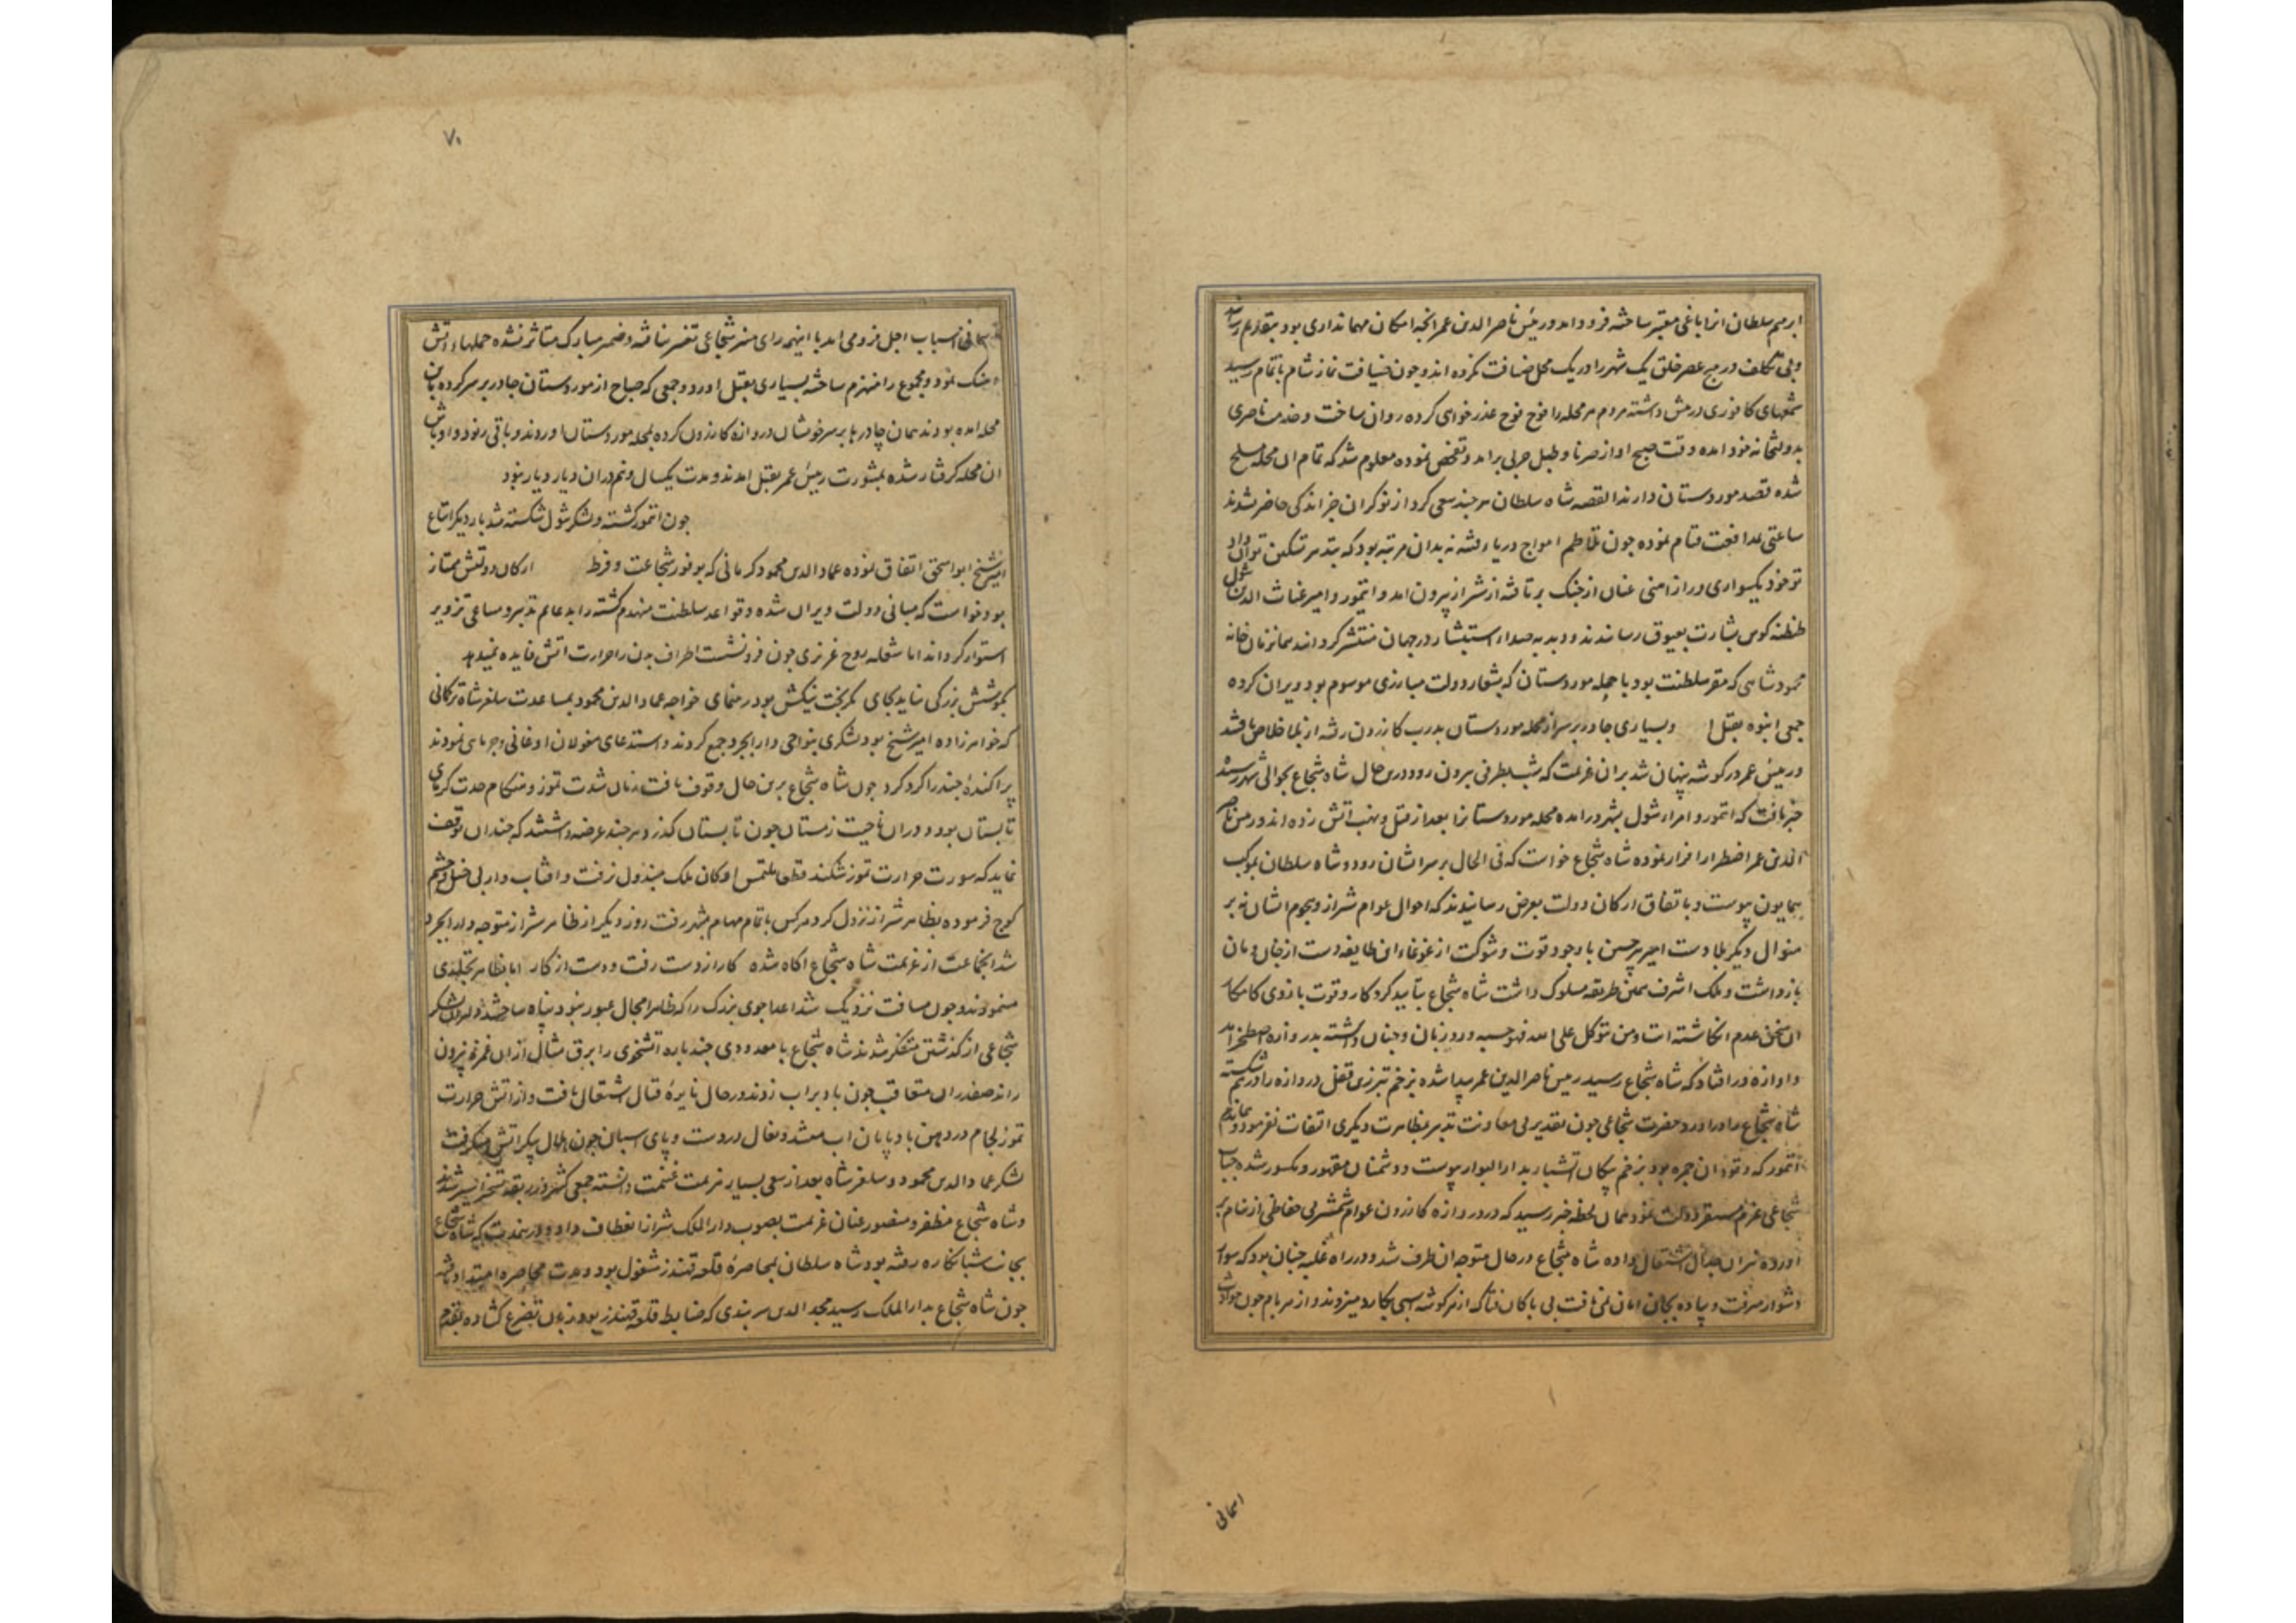 ابرسم سلطان انرا باغی معتبر ساخته فرود امد و رئیس ناصر الدین عمر انجه امکان مهمانداری بود بتقدیم رسانید
و بی تکلف در هیچ عصر خلق یک شهر را در یک محل ضیافت نکرده اند و جون ضیافت نماز شام باتمام رسید
شمعهای کافوری در پیش داشته مردم هر محله را فوج فوج عذر خواهی کرده روان ساخت و خدمت ناصری
بدولتخانه خود امده وقت صبح اواز صرنا و طبل حربی برامد و تفحص نموده معلوم شد که تمام ال محله مسلح
شده قصد موردستان دارند القصه شاه سلطان هر جند سعی کرد از نوکران جز اندکی حاضر نشدند
ساعتی بمدافعت قیام نموده جون تلاطم امواج دریاء فتنه نه بدان مرتبه بود که بتدبیر تسکین توان داد
تو خود یکسواری و راز امنی عنان از جنک بر تافته از شیراز بیرون امد و ایتمور و امیر غیاث الدین شول
طنطنه کوس بشارت بعیوق رسانیدند و دبدبه صداء استبشار در جهان منتشر کردانیدند همانزمان خانه
محمود شاهی که مقر سلطنت بود با جمله موردستان که بشعار دولت مبارزی موسوم بود ویران کرده
جمعی انبوه بقتل ا و بسیاری جادر بر سر از محله موردستان بدرب کازرون رفته از بلا خلاص یافتند
و رئیس عمر در کوشه پنهان شد بران عزیمت که شب بطرفی بیرون رود درین حال شاه شجاع بحوالی شهر رسید
خبر یافت که اتمور و امراء شول بشهر درامده محله موردستانرا بعد از قتل و نهب اتش زده اند و رئیس ناصر
الدین عمر اضطرارا فرار نموده شاه شجاع خواست که فی الحال بر سر ایشان رود و شاه سلطان بموکب
همایون پیوست و باتفاق ارکان دولت بعرض رسانیدند که احوال عوام شیراز و هجوم ایشان نه بر
منوال دیکر بلادست امیر پیر حسین با وجود قوت و شوکت از غوغاء این طایفه دست از خان و مان
بازداشت و ملک اشرف همین طریقه مسلوک داشت شاه شجاع بتایید کردکار و قوت بازوی کامکار
ان سخن عدم انکاشته ایت و من یتوکل علی الله فهو حسبه ورد زبان و جنان داشته بدروازه اصطخر امد
و اوازه در افتاد که شاه شجاع رسید رئیس ناصر الدین عمر پیدا شده بزخم تبرزین قفل دروازه را در هم شکسته
شاه شجاع را دراورد و حضرت شجاعی جون تقدیر بی معاونت تدبیر بمظاهرت دیکری التفات نفرمود و هماندم
اتمور که وقود ان جمره بود بزخم پیکان اتشبار بدار البوار پیوست و دشمنان مقهور و مکسور شده جناب
شجاعی عزم مستقر دولت نمود همان لحظه خبر رسید که در دروازه کازرون عوام شمشیر بی حفاظی از نیام بر
اورده نیران جدال اشتعال داده شاه شجاع در حال متوجه ان طرف شد و در راه غلبه جنان بود که سوار
دشوار میرفت و پیاده بجان امان نمی یافت بی باکان فتاک از هر کوشه اسبی بکارد میزدند و از هر بام جون حوادث
اسمانی
۷۰
اسمانی اسباب اجل فرو می امد با اینهمه رای منیر شجاعی تغیر نیافته و ضمیر مبارک متاثر نشده حملهاء اتش
اهنک نمود و مجموع را منهزم ساخته بسیاری بقتل اورد و جمعی که صباح از موردستان جادر بر سر کرده باین
محله امده بودند همان چادرها بر سر خویشان دروازه کازرون کرده بمحله موردستان اوردند و باقی رنود و اوباش
ان محله کرفتار شده بمشورت رئیس عمر بقتل امدند و مدت یکسال و نیم دران دیار دیار نبود
جون اتمور کشته و لشکر شول شکسته شد بار دیکر اتباع
امیر شیخ ابو اسحق اتفاق نموده عماد الدین محمود کرمانی که بوفور شجاعت و فرط ارکان دولتش ممتاز
بود خواست که مبانی دولت ویران شده و قواعد سلطنت منهدم کشته را بدعایم تدبیر و مساعی تزویر
استوار کرداند اما شعله روح غریزی جون فرو نشست اطراف بدن را حرارت اتش فایده نمیدهد
بکوشش بزرکی نیاید بجای مکر بخت نیکش بود رهنمای خواجه عماد الدین محمود بمساعدت سلغر شاه ترکمانی
که خواهر زاده امیر شیخ بود لشکری بنواحی دارابجرد جمع کردند و استدعای مغولان اوغانی و جرمایی نمودند
پراکندهٔ جند را کرد کرد جون شاه شجاع برین حال وقوف یافت زمان شدت تموز و هنکام حدت کرمای
تابستان بود و دران ناحیت زمستان جون تابستان کذرد هر جند عرضه داشتند که جندان توقف
نماید که سورت حرارت تموز شکند قطعا ملتمس ارکان ملک مبذول نرفت و افتاب وار بی خیل و حشم
کوچ فرموده بظاهر شیراز نزول کرد و هر کس باتمام مهام بشهر رفت روز دیکر از ظاهر شیراز متوجه دارابجرد
شد انجماعت از عزیمت شاه شجاع اکاه شده کار از دست رفت و دست از کار اما بظاهر تجلدی
مینمودند و جون مسافت نزدیک شد اعدا جوی بزرک را که ظاهرا مجال عبور نبود پناه ساختند و لشکر
شجاعی از کذشتن متفکر شدند شاه شجاع با معدودی جند باره اتشخوی را برق مثال ازان غمره بیرون
راند صفدران متعاقب جون باد براب زدند در حال نایرهٔ قتال اشتعال یافت و از اتش حرارت
تموز لجام در دهن بادپایان اب میشد و نعال در دست و پای اسبان جون هلال پیکر اتش میکرفت
لشکر عماد الدین محمود و سلغر شاه بعد از سعی بسیار هزیمت غنیمت دانسته جمعی کثیر در ربقه تسخیر اسیر شدند
و شاه شجاع مظفر و منصور عنان عزیمت بصوب دار الملک شیراز انعطاف داد و درینمدت که شاه شجاع
بجانب شبانکاره رفته بود شاه سلطان بمحاصرهٔ قلعه قهندز مشغول بود و مدت محاصره امتداد یافته
جون شاه شجاع بدار الملک رسید مجد الدین سربندی که ضابط قلعه قهندز بود زبان بتضرع کشاده بقدم